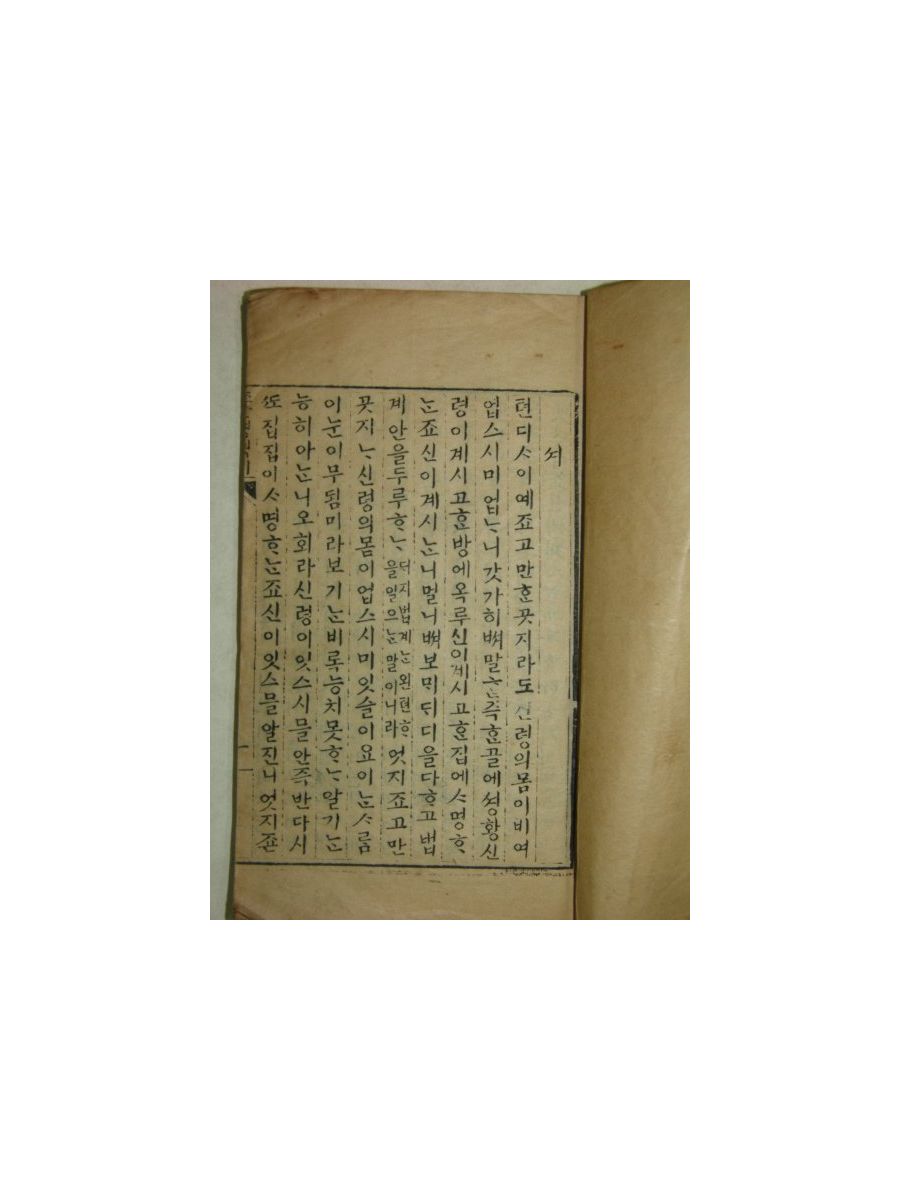 셔
텬디ᄉᆞ이예죠고만ᄒᆞᆫ꼿지라도신령의몸이비여
업스시미업ᄂᆞ니갓가히ᄡᅧ말ᄒᆞᆫ즉ᄒᆞᆫ꼴에셩황신
령이계시고ᄒᆞᆫ방에옥루신이계시고ᄒᆞᆫ집에ᄉᆞ명ᄒᆞ
ᄂᆞᆫ죠신이계시ᄂᆞ니멀니ᄡᅧ보ᄆᆡᄃᆡ디을다ᄒᆞ고법
계안을두루ᄒᆞᄂᆞ 더지법계ᄂᆞᆫ왼텬ᄒᆞ 을일으ᄂᆞᆫ말이니라 엇지죠고만
꼿지ᄂᆞ신령의몸이업스시미잇슬이요이ᄂᆞᆫᄉᆞᄅᆞᆷ
이눈이무됨미라보기ᄂᆞᆫ비록능치못ᄒᆞᄂᆞ알기ᄂᆞᆫ
능히아ᄂᆞ니오회라신령이잇스시믈안즉반다시
ᄯᅩ집집이ᄉᆞ명ᄒᆞᄂᆞᆫ죠신이잇스믈알진니엇지죤